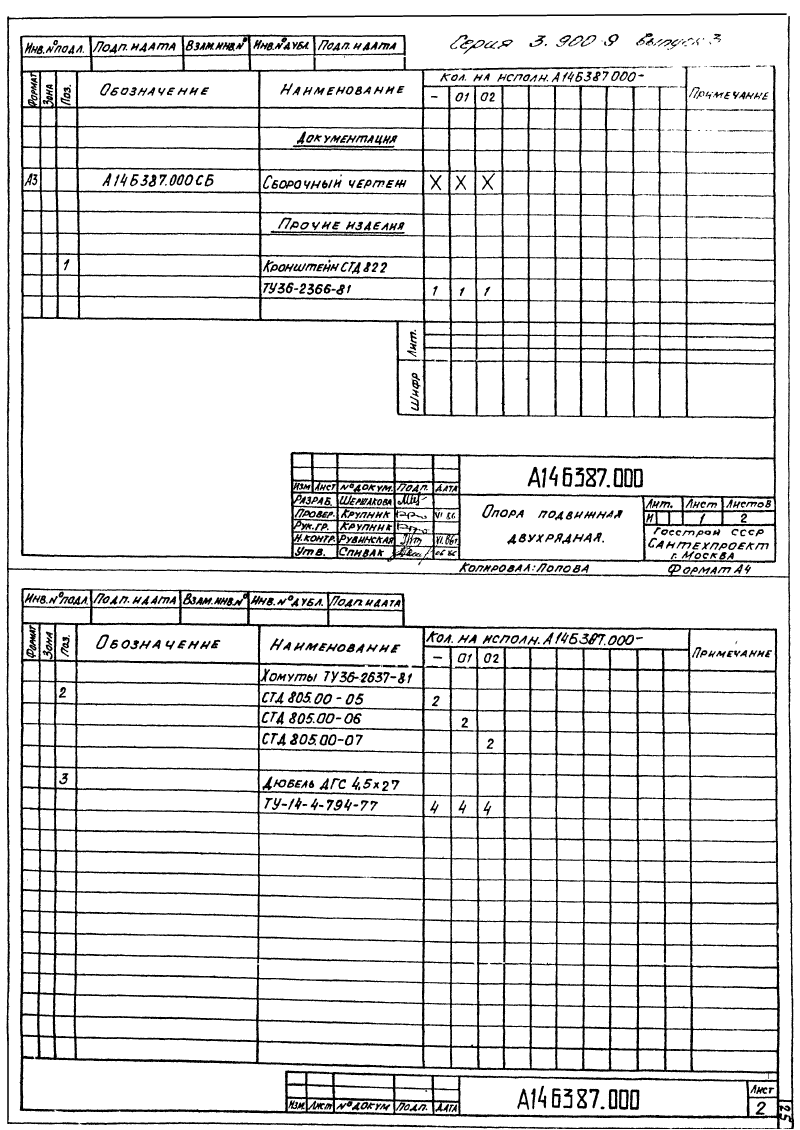 Серия 3.900-9 выпуск 3
Инв.№подл. Подп. и дата Взам.инв.№ Инв.№дубл. Подп. и дата
Формат Зона Поз. Обозначение Наименование Кол. на исполн. А14Б387.000- Примечание
- 01 02
Документация
А3 А14Б387.000 СБ Сборочный чертеж X X X
Прочие изделия
1 Кронштейн СТД 822
ТУ36-2366-81 1 1 1
Лит.
Шифр
А14Б387.000
Изм Лист №докум. Подп. Дата
Разраб. Шершакова
Провер. Крупник VI.86
Рук.гр. Крупник
Н.контр. Рубинская VI.86г
Утв. Спивак 06.86
Опора подвижная
двухрядная.
Лит. Лист Листов
И 1 2
Госстрой СССР
Сантехпроект
г. Москва
Копировал: Попова Формат А4
Инв.№подл. Подп. и дата Взам.инв.№ Инв.№дубл. Подп. и дата
Формат Зона Поз. Обозначение Наименование Кол. на исполн. А14Б387.000- Примечание
- 01 02
Хомуты ТУ36-2637-81
2 СТД 805.00-05 2
СТД 805.00-06 2
СТД 805.00-07 2
3 Дюбель ДГС 4,5х27
ТУ-14-4-794-77 4 4 4
Изм. Лист №докум Подп. Дата
А14Б387.000
Лист
2
25